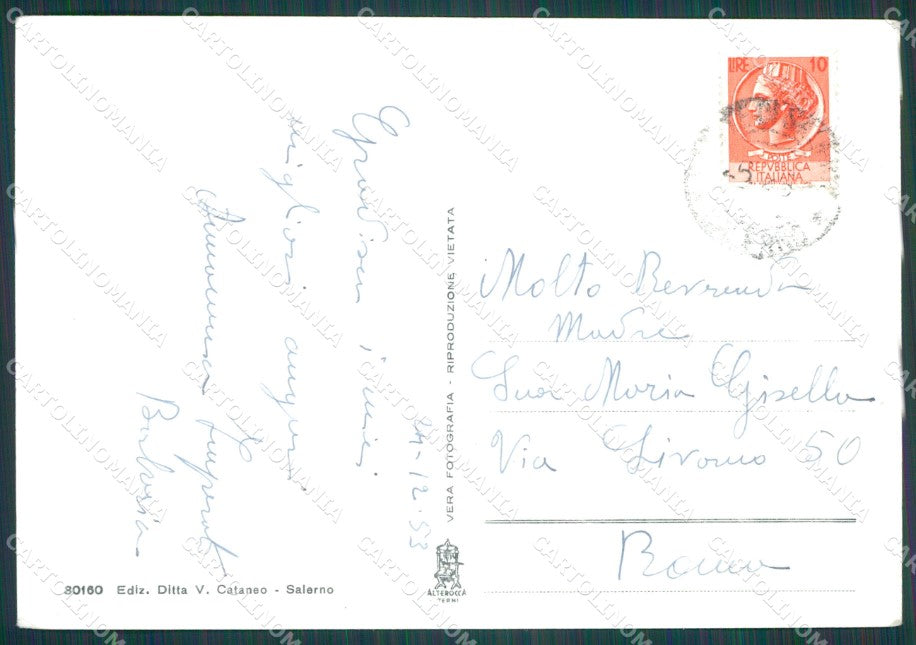 LIRE 10
POSTE
REPVBBLICA
ITALIANA
Gradisca i miei
migliori auguri
Barbaria
24-12-53
VERA FOTOGRAFIA - RIPRODUZIONE VIETATA
Molto Reverenda
Madre
Suor Maria Gisella
Via Livorno 50
Roma
ALTEROCCA
TERNI
80160 Ediz. Ditta V. Cataneo - Salerno
CARTOLINOMANIA